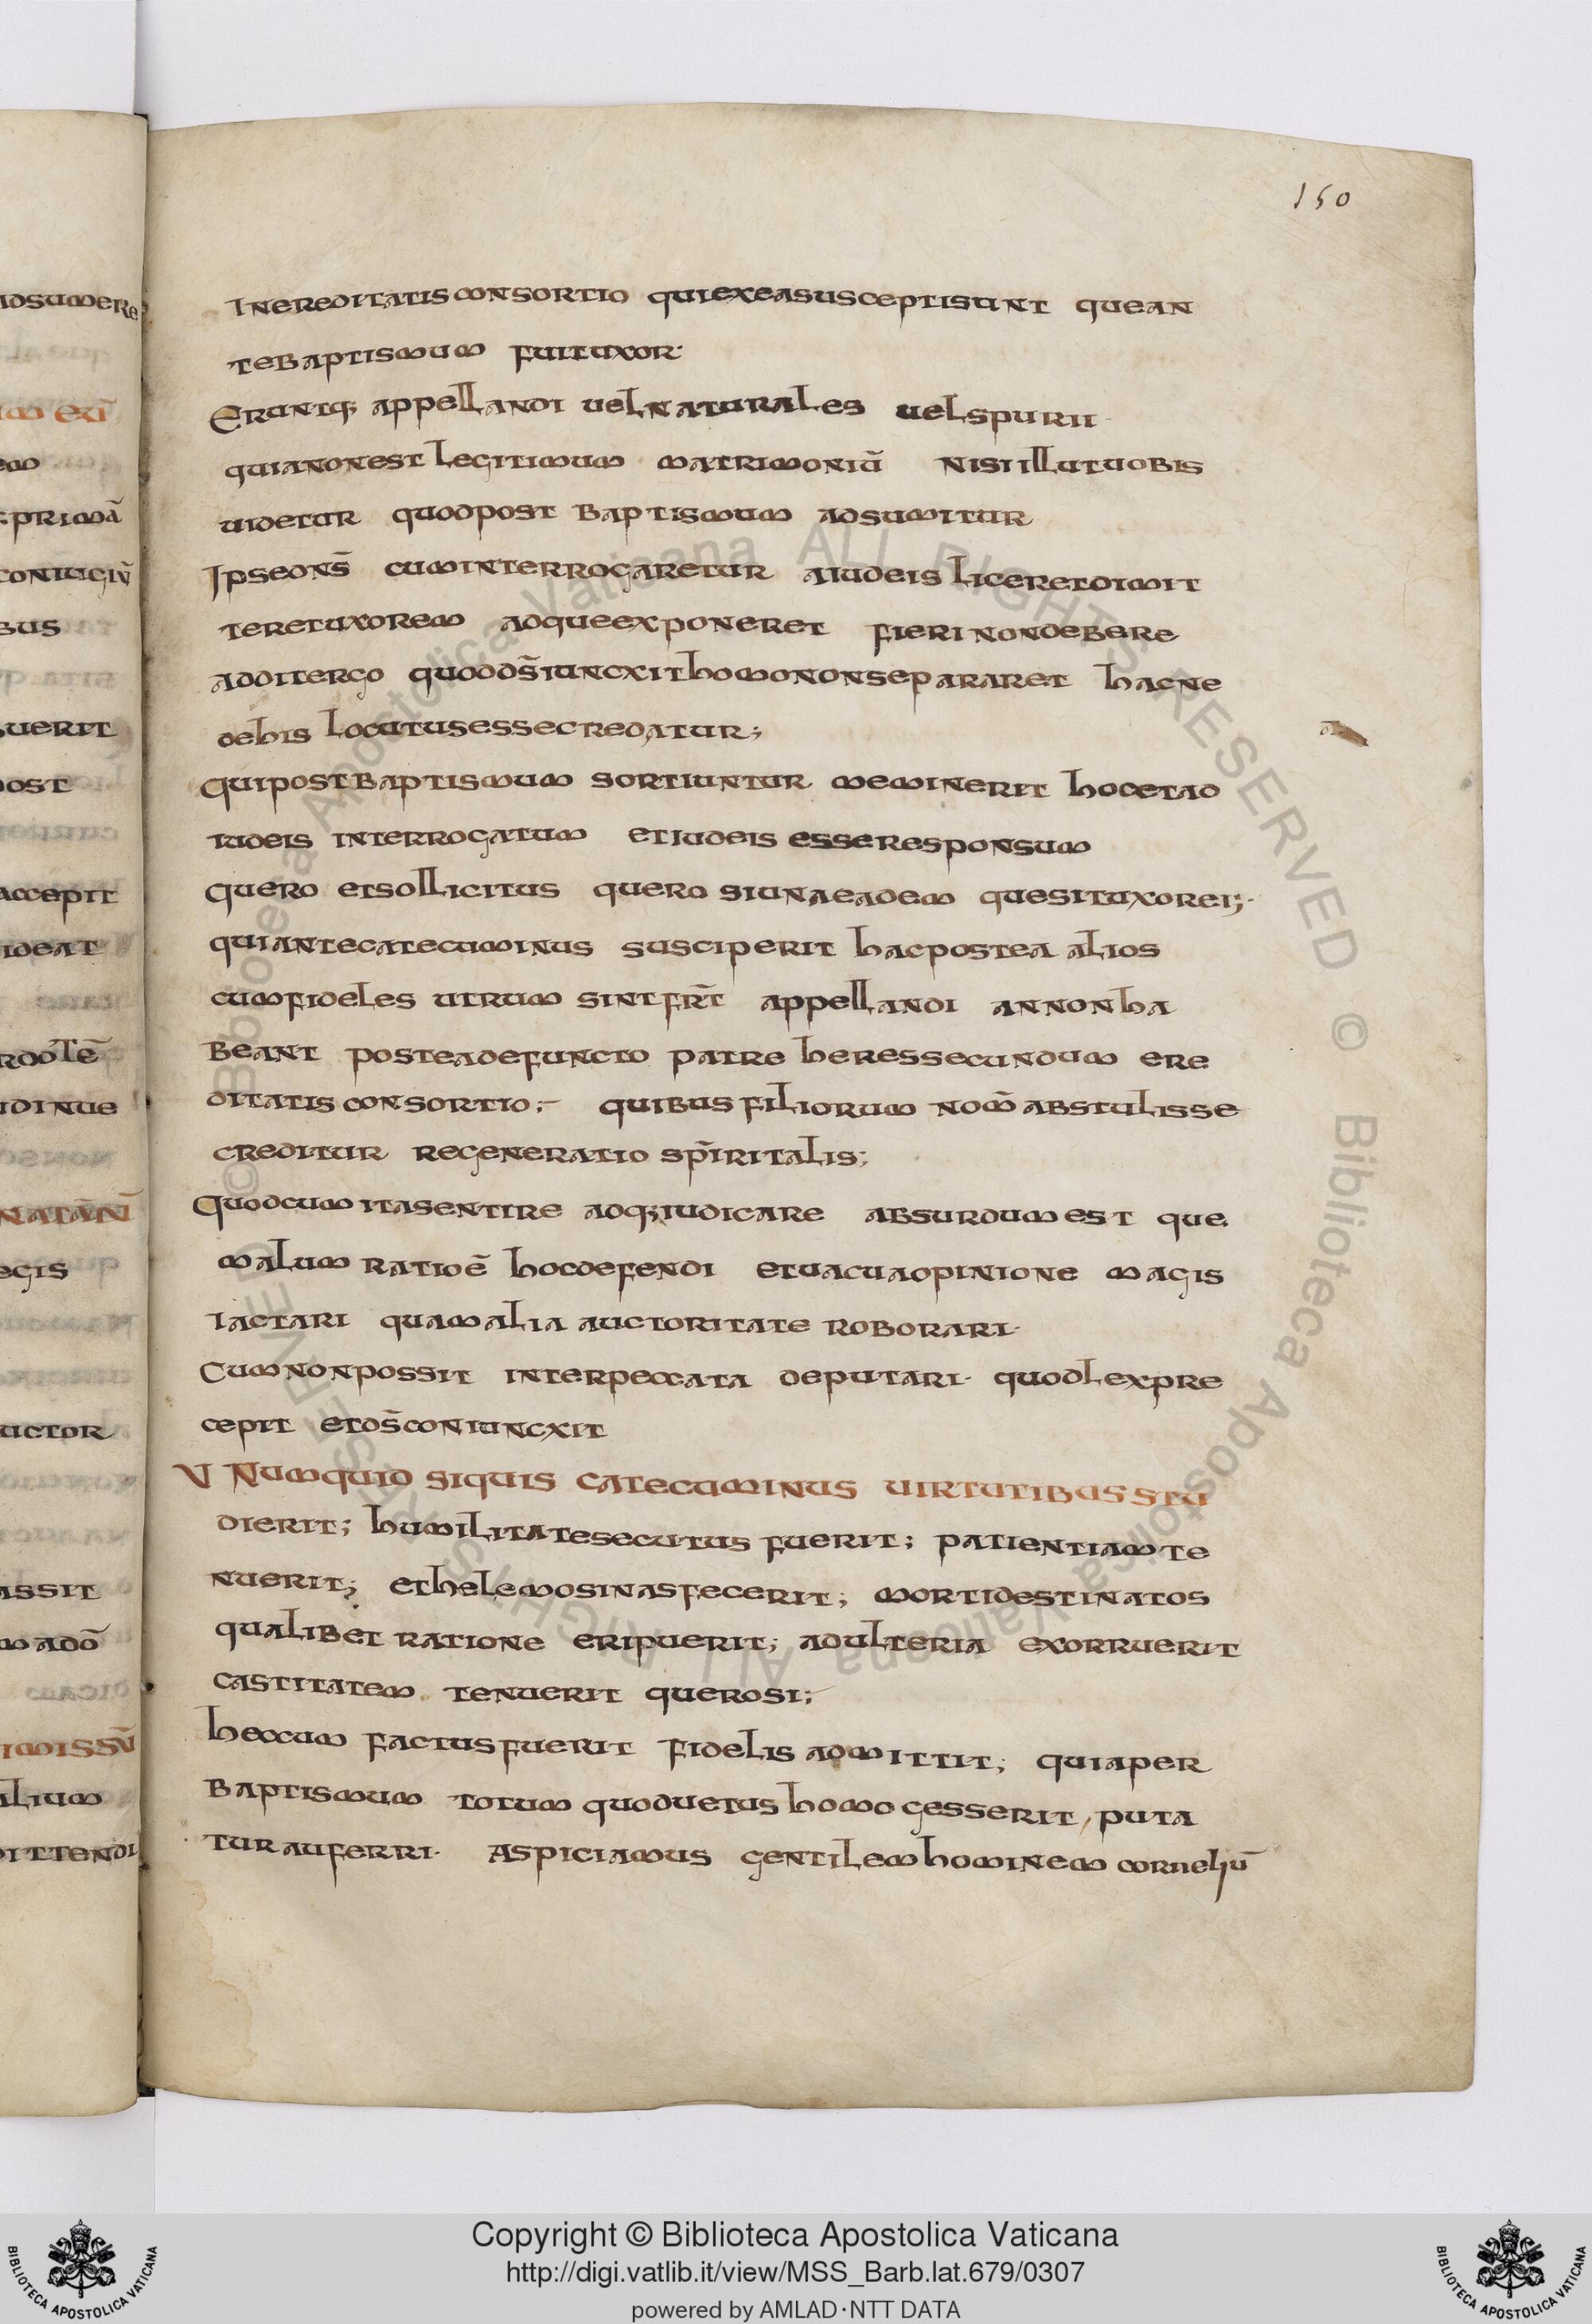 150
Inereditatis consortio qui ex ea susceptisunt que an
te baptismum fuituxor·
Eruntq; appellandi uel naturales uel spurii·
quia non est legitimum matrimoniū nisi illut uobis
uidetur quod post baptismum adsumitur
Ipse dns̄ cum interrogaretur aiudeis liceret dimit
teret uxorem adque exponeret fieri non debere
addit ergo quod ds̄ iuncxit homo non separaret hac ne
de his locutus esse credatur;
Qui post baptismum sortiuntur meminerit hoc et ad
iudeis interrogatum et iudeis esse responsum
quero et sollicitus quero si una eademque situxor ei;·
qui ante catecuminus susciperit hac postea alios
cum fideles utrum sint fr̄t appellandi an non ha
beant postea defuncto patre heres secundum ere
ditatis consortio;– quibus filiorum nom̄ abstulisse
creditur regeneratio sp̄iritalis;
Quod cum ita sentire adq; iudicare absurdum est que
malum ratio ē hoc defendi et uacua opinione magis
iactari quam alia auctoritate roborari·
Cum non possit inter peccata deputari· quod lex pre
cepit et ds̄ coniuncxit
V Numquid siquis catecuminus uirtutibus stu
dierit; humilitate secutus fuerit; patientiam te
nuerit; et helemosinas fecerit; morti destinatos
qualibet ratione eripuerit; adulteria exorruerit
castitatem tenuerit quero si;
hec cum factus fuerit fidelis admittit; quia per
baptismum totum quod uetus homo gesserit, puta
tur auferri· Aspiciamus gentilem hominem corneliū
adsumere
m exū
em
primā
coniugiū
bus
uerit
post
accepit
ideat
idinue
natānī
egis
uctor
assit
m adō
imissū
alium
ittendi
© Biblioteca Apostolica Vaticana ALL RIGHTS RESERVED © Biblioteca Apostolica Vaticana ALL RIGHTS RESERVED
Copyright © Biblioteca Apostolica Vaticana
http://digi.vatlib.it/view/MSS_Barb.lat.679/0307
powered by AMLAD·NTT DATA
BIBLIOTECA APOSTOLICA VATICANA
BIBLIOTECA APOSTOLICA VATICANA